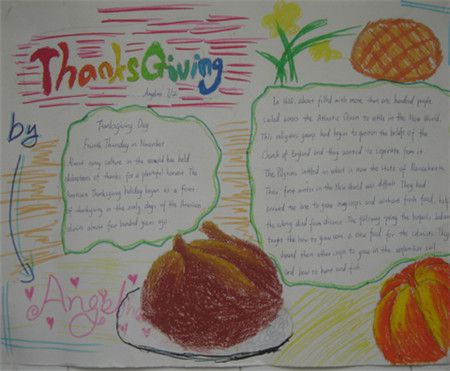 ThanksGiving
by
Angelina
Thanksgiving Day
Fourth Thursday in November
Almost every culture in the world has held
celebrations of thanks for a plentiful harvest. The
American Thanksgiving holiday began as a feast
of thanksgiving in the early days of the American
almost four hundred years ago
In 1620, about filled with more than one hundred people
sailed across the Atlantic Ocean to settle in the New World.
This religious group had begun to question the beliefs of the
Church of England and they wanted to separate from it.
The Pilgrims settled in what is now the state of Massachusetts.
Their first winter in the New World was difficult. They had
arrived too late to grow crops and without fresh food, half
the colony died from disease. The following spring the Iroquois Indians
taught the how to grow corn a new food for the colonists. They
showed them other crops to grow in the unfamiliar soil
and how to hunt and fish.